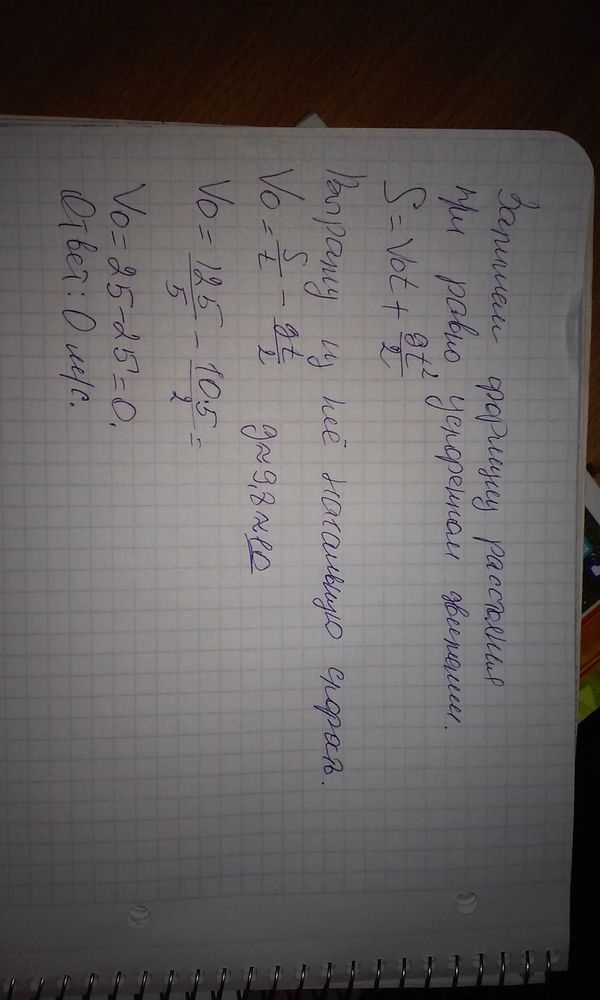 Запишем формулу расстояния
при равно ускоренном движении.
S = V0t + gt²/2
Выражу из неё начальную скорость.
V0 = S/t - gt/2 g≈9,8≈10
V0 = 125/5 - 10·5/2 =
V0 = 25-25=0.
Ответ: 0 м/с.